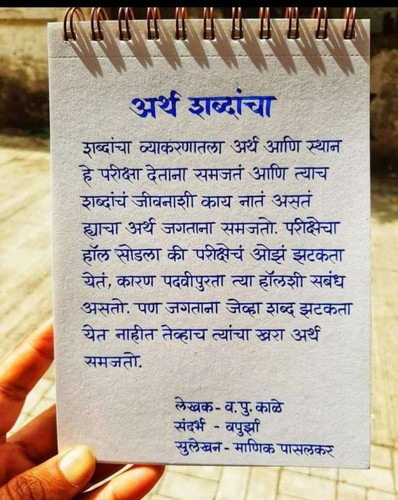 अर्थ शब्दांचा
शब्दांचा व्याकरणातला अर्थ आणि स्थान
हे परीक्षा देताना समजतं आणि त्याच
शब्दांचं जीवनाशी काय नातं असतं
ह्याचा अर्थ जगताना समजतो. परीक्षेचा
हॉल सोडला की परीक्षेचं ओझं झटकता
येतं, कारण पदवीपुरता त्या हॉलशी सबंध
असतो. पण जगताना जेव्हा शब्द झटकता
येत नाहीत तेव्हाच त्यांचा खरा अर्थ
समजतो.
लेखक - व. पु. काळे
संदर्भ - वपुर्झा
सुलेखन - माणिक पासलकर